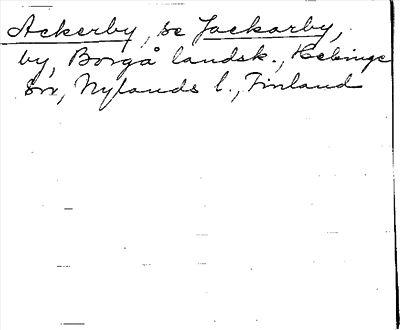 Ackerby, se Jackarby,
by, Borgå landsk., Helsinge
sn, Nylands l., Finland